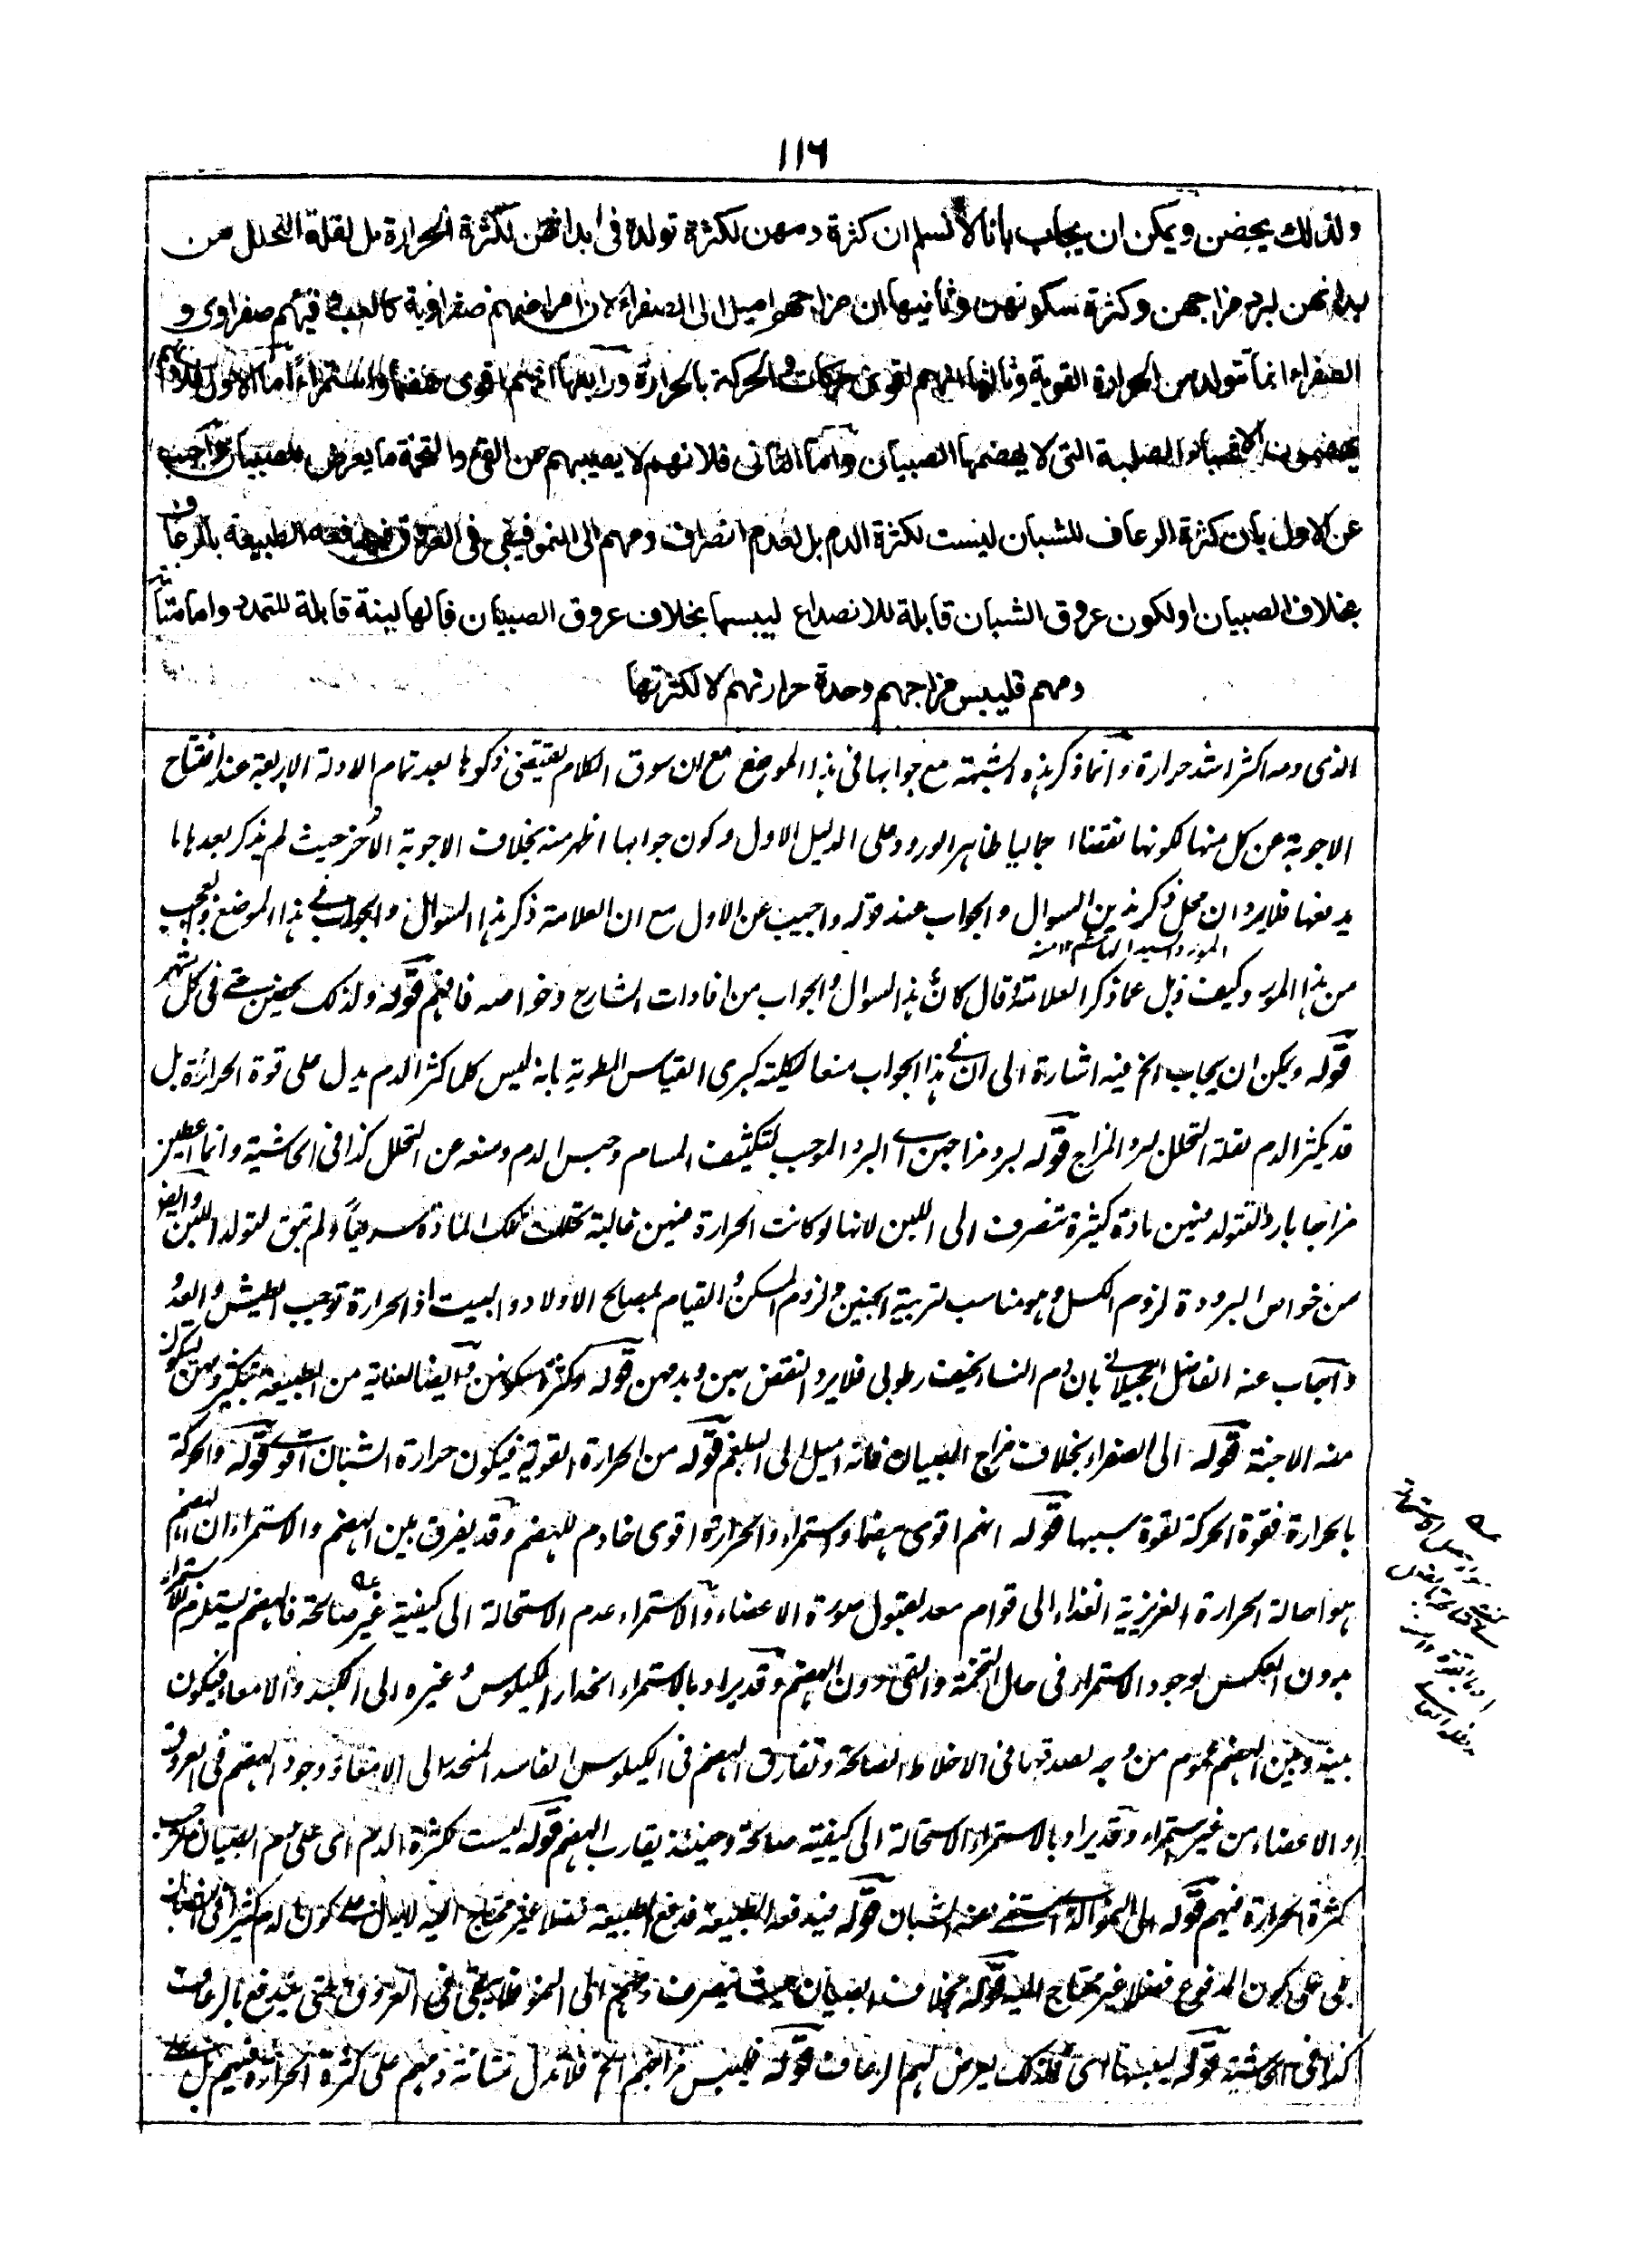 ١١٦
ولذلك يحضن ويمكن ان يجاب بانا لا نسلم ان كثرة دمهن لكثرة تولده فى ابدانهن لكثرة الحرارة بل لقلة التحلل من
بدانهن لبرد مزاجهن وكثرة سكونهن وثانيها ان مزاجهم اميل الى الصفراء لان امراضهم صفراوية كالغب وقيئهم صفراوى و
الصفراء انما تتولد من الحرارة القوية وثالثها انهم اقوى حركات والحركة بالحرارة ورابعها انهم اقوى هضما واستمراء اما الاول فلانهم
يهضمون الاشياء الصلبة التى لا يهضمها الصبيان واما الثانى فلانهم لا يصيبهم من القئ والتخمة ما يعرض للصبيان واجيب
عن الاول بان كثرة الرعاف للشبان ليست لكثرة الدم بل لعدم انصراف دمهم الى النمو فيبقى فى العروق فيدفعه الطبيعة بالرعاف
بخلاف الصبيان او لكون عروق الشبان قابلة للانصداع ليبسها بخلاف عروق الصبيان فانها لينة قابلة للتمدد واما متانة
دمهم فليبس مزاجهم وحدة حرارتهم لا لكثرتها
الذى دمه اكثر اشد حرارة وانما ذكر هذه الشبهة مع جوابها فى هذا الموضع مع ان سوق الكلام يقتضى ذكرها بعد تمام الادلة الاربعة عند افتتاح
الاجوبة عن كل منها لكونها نقضا اجماليا ظاهر الورود على الدليل الاول وكون جوابها اظهر منه بخلاف الاجوبة الاخر حيث لم يذكر بعدها ما
يدفعها فلا يرد ان محل ذكر هذين السوال والجواب عند قوله واجيب عن الاول مع ان العلامة ذكر هذا السوال والجواب فى هذا الموضع والعجب
المورد السيد الهاشم ١٢ منه
من هذا المورد وكيف ذهل عما ذكر العلامة وقال كان هذا السوال والجواب من افادات الشارح وخواصه فافهم قوله ولذلك يحضن اى فى كل شهر
قوله ويمكن ان يجاب الخ فيه اشارة الى ان فى هذا الجواب منعا لكلية كبرى القياس المطوية بانه ليس كل كثر الدم يدل على قوة الحرارة بل
قد يكثر الدم لقلة التحلل لبرد المزاج قوله لبرد مزاجهن اى البرد الموجب لتكثيف المسام وحبس الدم ومنعه عن التحلل كذا فى الحاشية وانما اعطين
مزاجا باردا لتتولد فيهن مادة كثيرة تنصرف الى اللبن لانها لو كانت الحرارة فيهن غالبة تحللت تلك المادة سريعا ولم تبق لتولد اللبن وايضا
من خواص البرودة لزوم الكسل وهو مناسب لتربية الجنين ولزوم المسكن والقيام بمصالح الاولاد والبيت اذ الحرارة توجب الطيش والعدو
واجاب عنه الفاضل الجيلانى بان دم النساء نحيف رطوبى فلا يرد النقض بهن وبدمهن قوله وكثرة سكونهن وايضا لعناية من الطبيعة بتكثير دمهن ليتكون
منه الاجنة قوله الى الصفراء بخلاف مزاج الصبيان فانه اميل الى البلغم قوله من الحرارة القوية فيكون حرارة الشبان اقوى قوله والحركة
بالحرارة فقوة الحركة لقوة سببها قوله انهم اقوى هضما واستمراء والحرارة اقوى خادم للهضم وقد يفرق بين الهضم والاستمراء ان الهضم
هو احالة الحرارة الغريزية الغذاء الى قوام معد لقبول صورة الاعضاء والاستمراء عدم الاستحالة الى كيفية غير صالحة فالهضم يستلزم الاستمراء
بدون العكس لوجود الاستمراء فى حال التخمة والقئ دون الهضم وقد يراد بالاستمراء انحدار الكيلوس وغيره الى الكبد والامعاء فيكون
بينه وبين الهضم عموم من وجه لصدقهما فى الاخلاط الصالحة وتفارق الهضم فى الكيلوس الفاسد المنحدر الى الامعاء ووجود الهضم فى العروق
او الاعضاء من غير استمراء وقد يراد بالاستمراء الاستحالة الى كيفية صالحة وحينئذ يقارب الهضم قوله ليست لكثرة الدم اى على دم الصبيان بموجب
كثرة الحرارة فيهم قوله الى النمو الذى استغنى عنه الشبان قوله فيدفعه الطبيعة فدفع الطبيعة فضلا غير محتاج اليه لا يدل على كون الدم كثيرا فى الشبان
بل على كون المدفوع فضلا غير محتاج اليه قوله بخلاف الصبيان حيث ينصرف دمهم الى النمو فلا يبقى فى العروق حتى يندفع بالرعاف
كذا فى الحاشية قوله ليبسها اى فلذلك يعرض لهم الرعاف قوله فليبس مزاجهم الخ فلا تدل متانة دمهم على كثرة الحرارة فيهم بل